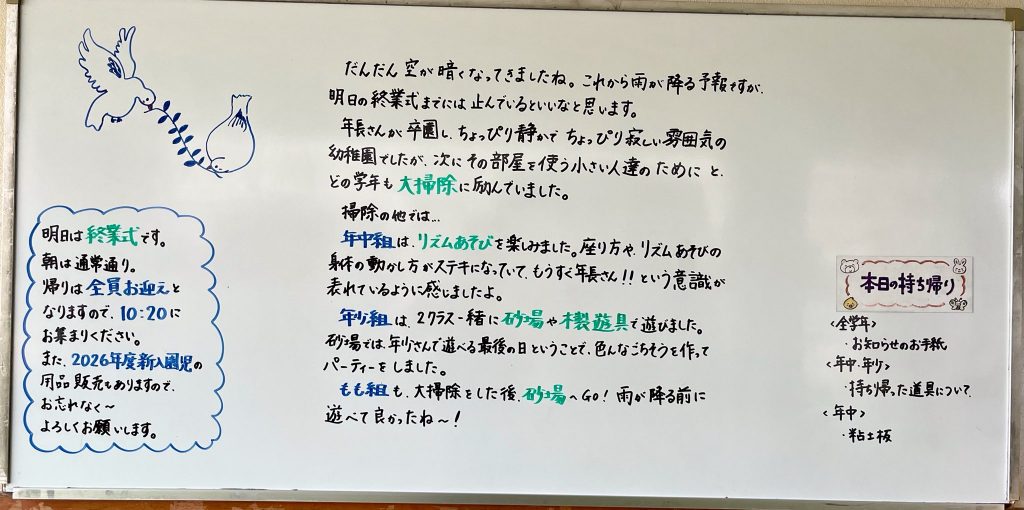 だんだん空が暗くなってきましたね。これから雨が降る予報ですが、
明日の終業式までには止んでいるといいなと思います。
年長さんが卒園し、ちょっぴり静かで ちょっぴり寂しい雰囲気の
幼稚園でしたが、次にその部屋を使う小さい人達のために と、
どの学年も大掃除に励んでいました。
掃除の他では…
年中組は、リズムあそびを楽しみました。座り方や、リズムあそびの
身体の動かし方がステキになっていて、もうすぐ年長さん!!という意識が
表れているように感じましたよ。
年少組は、2クラス一緒に砂場や木製遊具で遊びました。
砂場では、年少さんで遊べる最後の日ということで、色んなごちそうを作って
パーティーをしました。
もも組も、大掃除をした後、砂場へGO! 雨が降る前に
遊べて良かったね〜!
明日は終業式です。
朝は通常通り。
帰りは全員お迎えと
なりますので、10:20に
お集まりください。
また、2026年度新入園児の
用品販売もありますので、
お忘れなく〜
よろしくお願いします。
本日の持ち帰り
<全学年>
・お知らせのお手紙
<年中・年少>
・持ち帰った道具について
<年中>
・粘土板